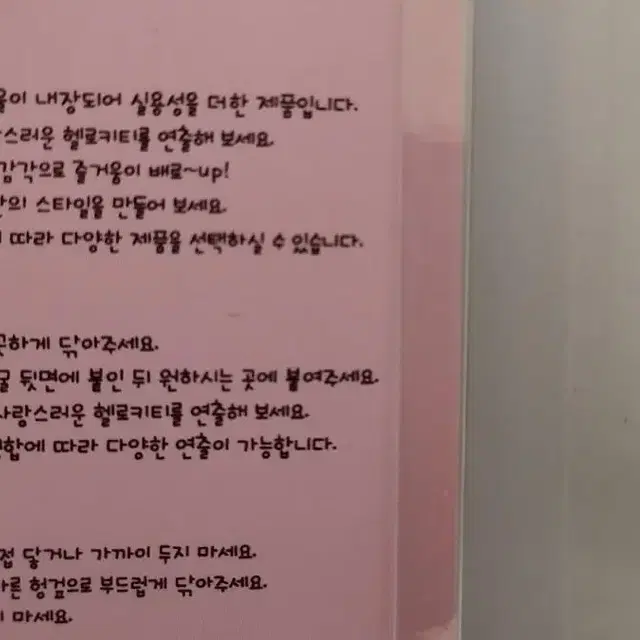 이 내장되어 실용성을 더한 제품입니다.
스러운 헬로키티를 연출해 보세요.
감각으로 즐거움이 배로~up!
의 스타일을 만들어 보세요.
따라 다양한 제품을 선택하실 수 있습니다.
하게 닦아주세요.
뒷면에 붙인 뒤 원하시는 곳에 붙여주세요.
사랑스러운 헬로키티를 연출해 보세요.
합에 따라 다양한 연출이 가능합니다.
접 닿거나 가까이 두지 마세요.
른 헝겊으로 부드럽게 닦아주세요.
마세요.